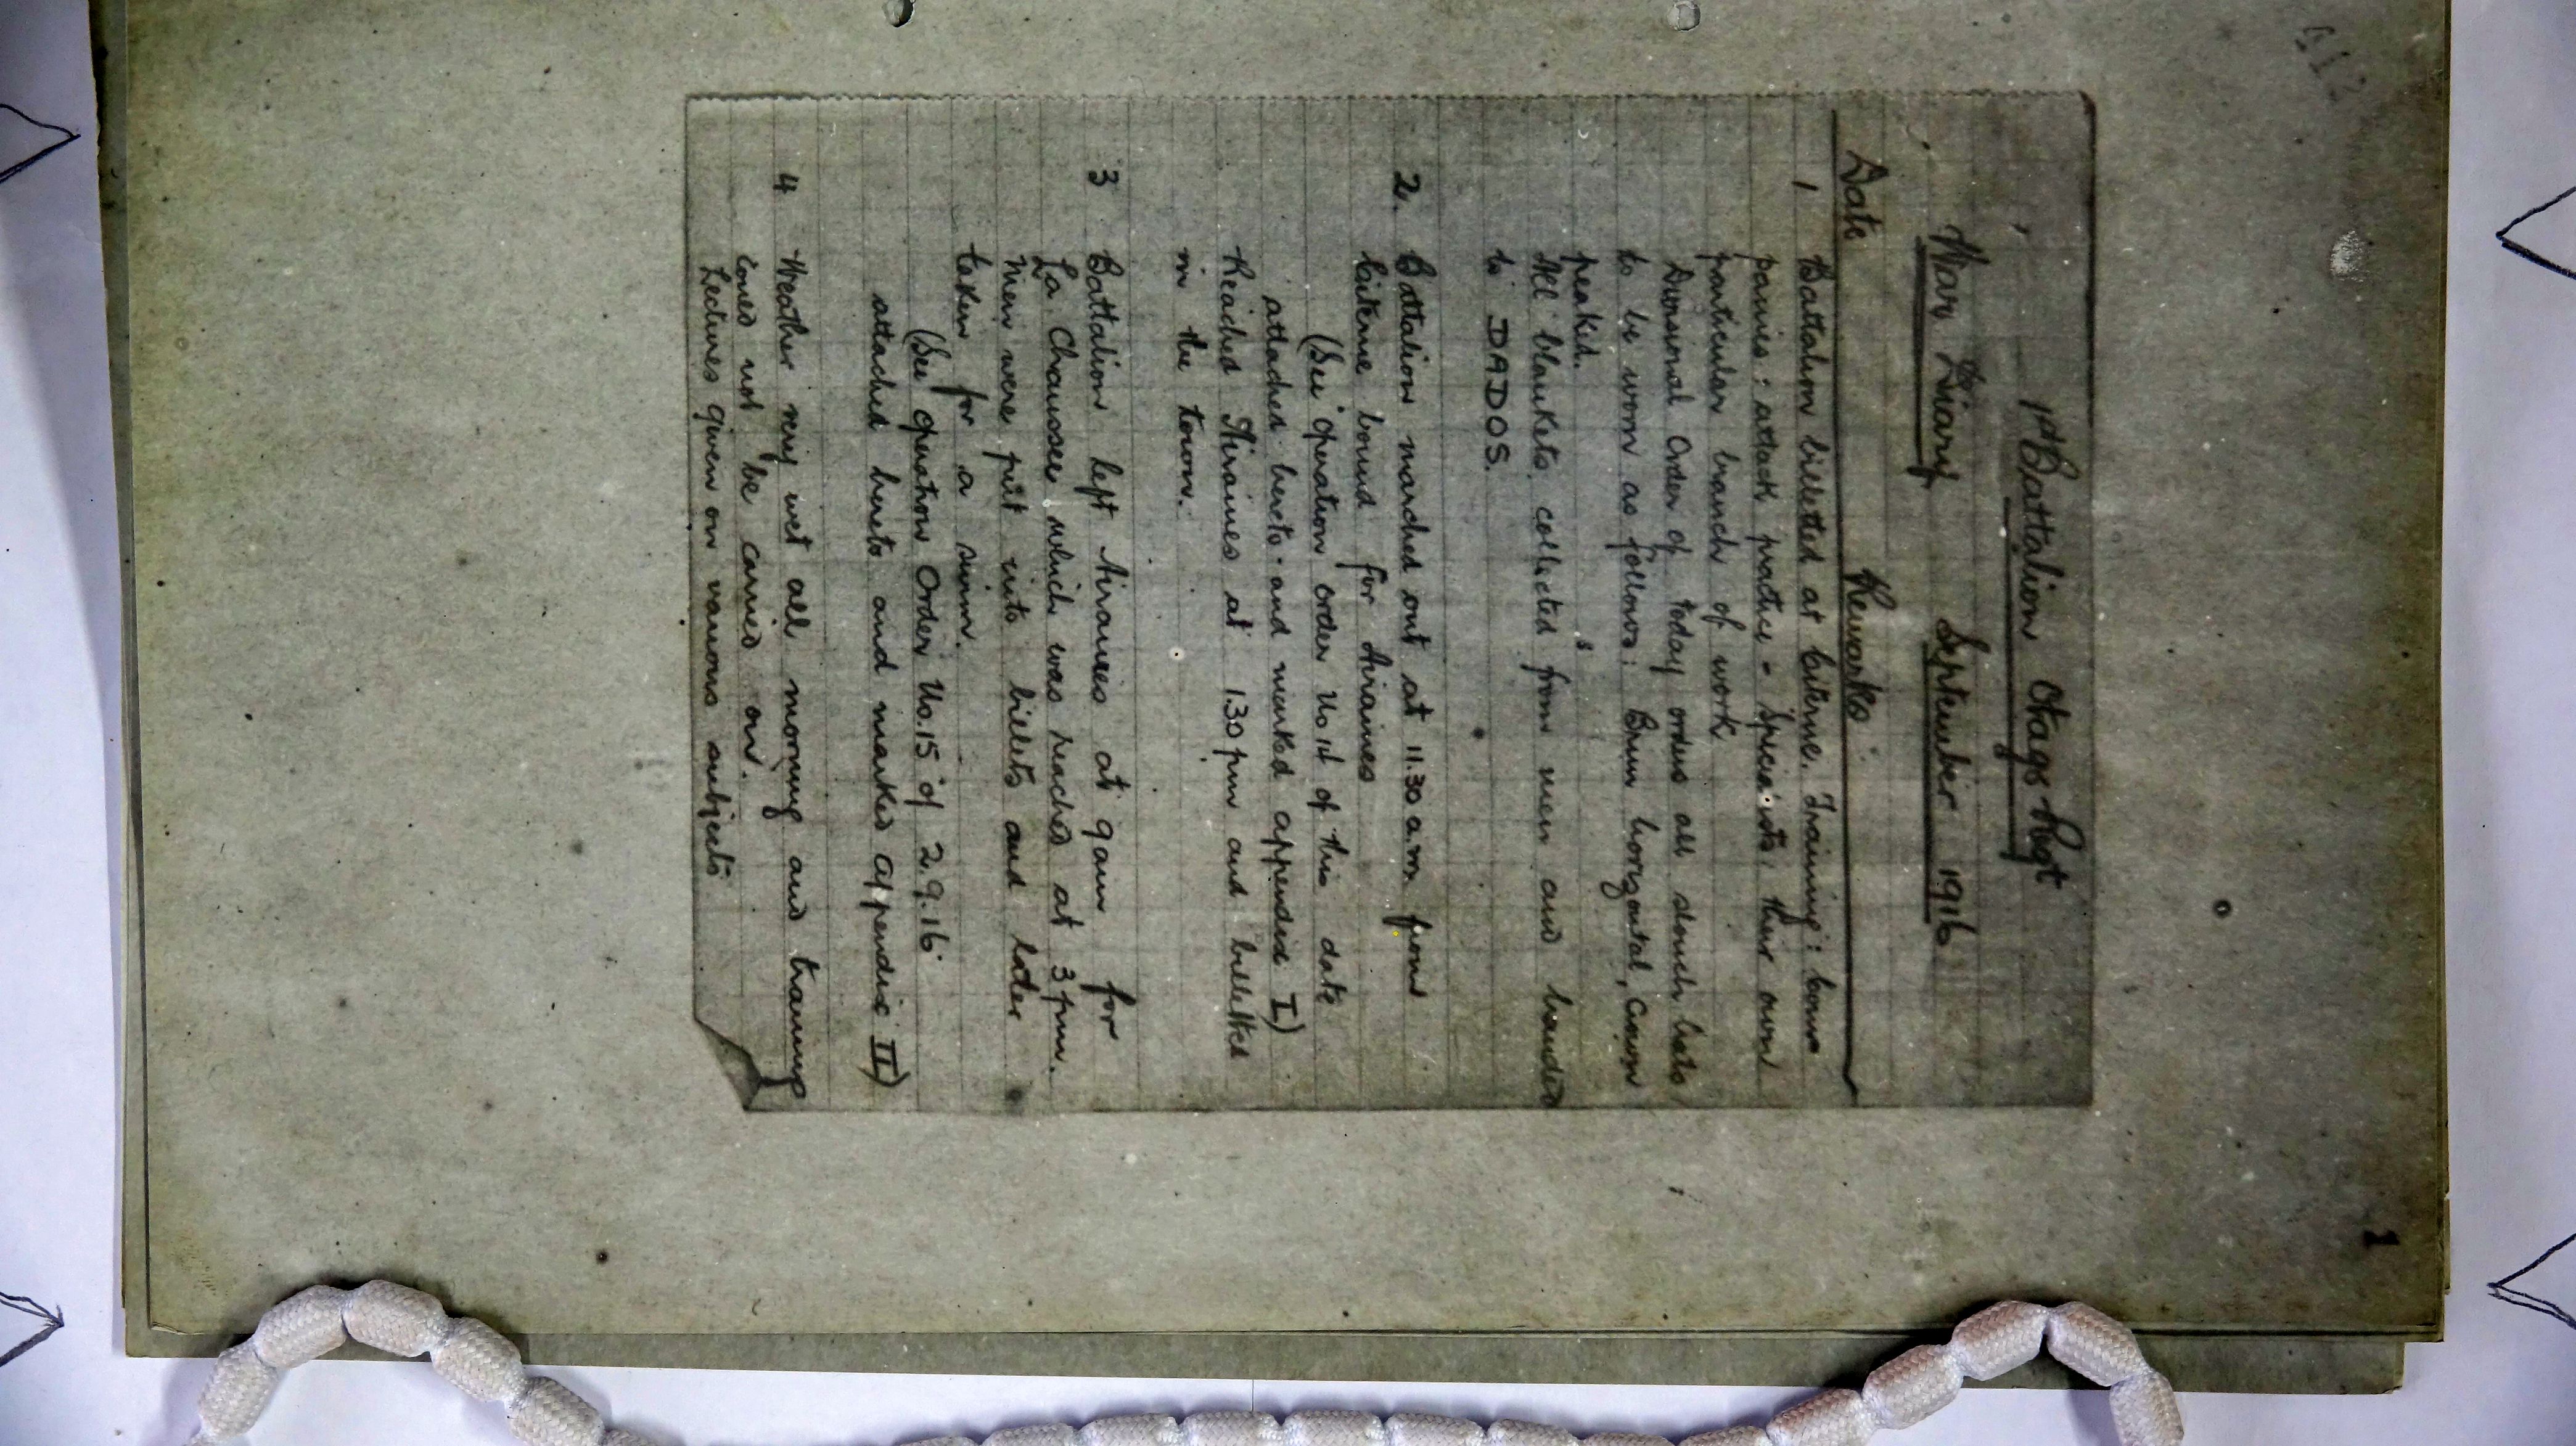 1
1st Battalion Otago Regt
War Diary September 1916
Date Remarks
1 Battalion billetted at Citerne. Training: Com-
panies: attack practice - Specialists: their own
particular branch of work.
Divisional Order of today orders all slouch hats
to be worn as follows: Brim horizontal, Crown
peaked.
All blankets collected from men and handed
to DADOS.
2. Battalion marched out at 11.30 a.m. from
Citerne bound for Airaines
(See Operation Order No 14 of this date
attached hereto and marked appendix I)
Reached Airaines at 1.30 pm and billetted
in the town.
3 Battalion left Airaines at 9 am for
La Chaussee which was reached at 3 pm.
Men were put into billets and later
taken for a swim.
(See Operation Order No. 15 of 2.9.16
attached hereto and marked appendix II)
4 Weather very wet all morning and training
could not be carried on.
Lectures given on various subjects